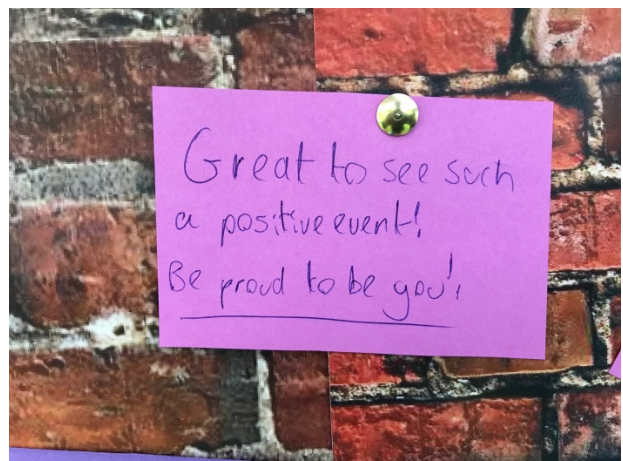 Great to see such
a positive event!
Be proud to be you!